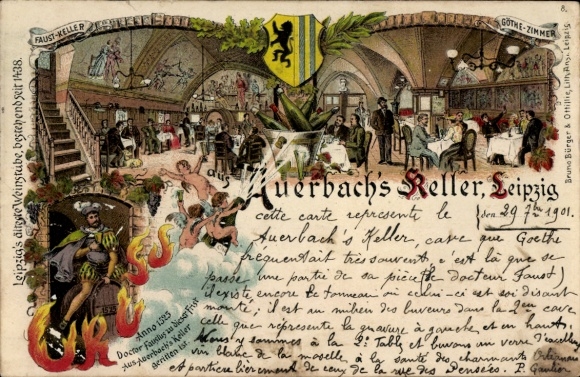 FAUST-KELLER
GÖTHE-ZIMMER
8.
Leipzig's älteste Weinstube, bestehend seit 1438.
Bruno Bürger & Ottilie, Lith. Anst. Leipzig.
GRUSS
aus
Auerbach's Keller, Leipzig
Anno 1525
Doctor Faustus zu dieser Frist
Aus Auerbach's Keller
geritten ist
den 29 7bre 1901.
cette carte represente le
Auerbach's Keller, cave que Goethe
frequentait très souvent, c'est là que se
passe une partie de sa pièce (le docteur Faust)
il existe encore le tonneau où celui-ci est soi disant
monté; il est au milieu des buveurs dans la 2me cave
celle que represente la gravure à gauche et en haut,
Nous y sommes à la 2e Table et buvons un verre d'excellent
vin blanc de la moselle à la santé des charmants Orléanais
et particulièrement de ceux de la rue des Pensées. P. Gautier